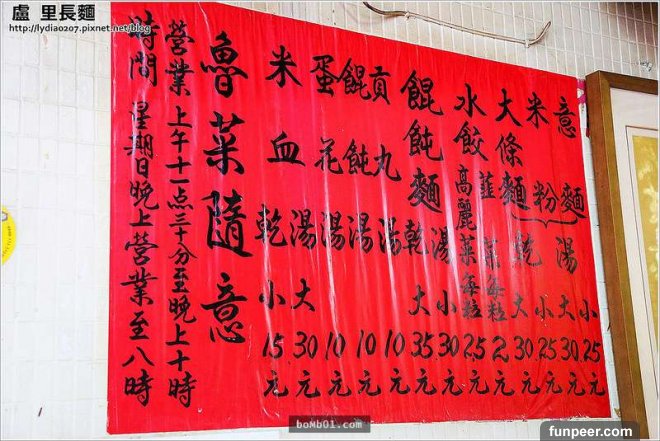 盧 里長麵
http://lydiao207.pixnet.net/blog
意麵
米粉
大條麵
湯 小 25元
大 30元
乾 小 25元
大 30元
水餃
韮菜每粒 2元
高麗菜每粒 25元
餛飩麵 乾湯
小 30元
大 35元
貢丸湯 10元
餛飩湯 10元
蛋花湯 10元
米血 乾湯
大 30元
小 15元
魯菜隨意
營業時間
上午十一点三十分至晚上十時
星期日晚上營業至八時
bomb01.com
funpeer.com